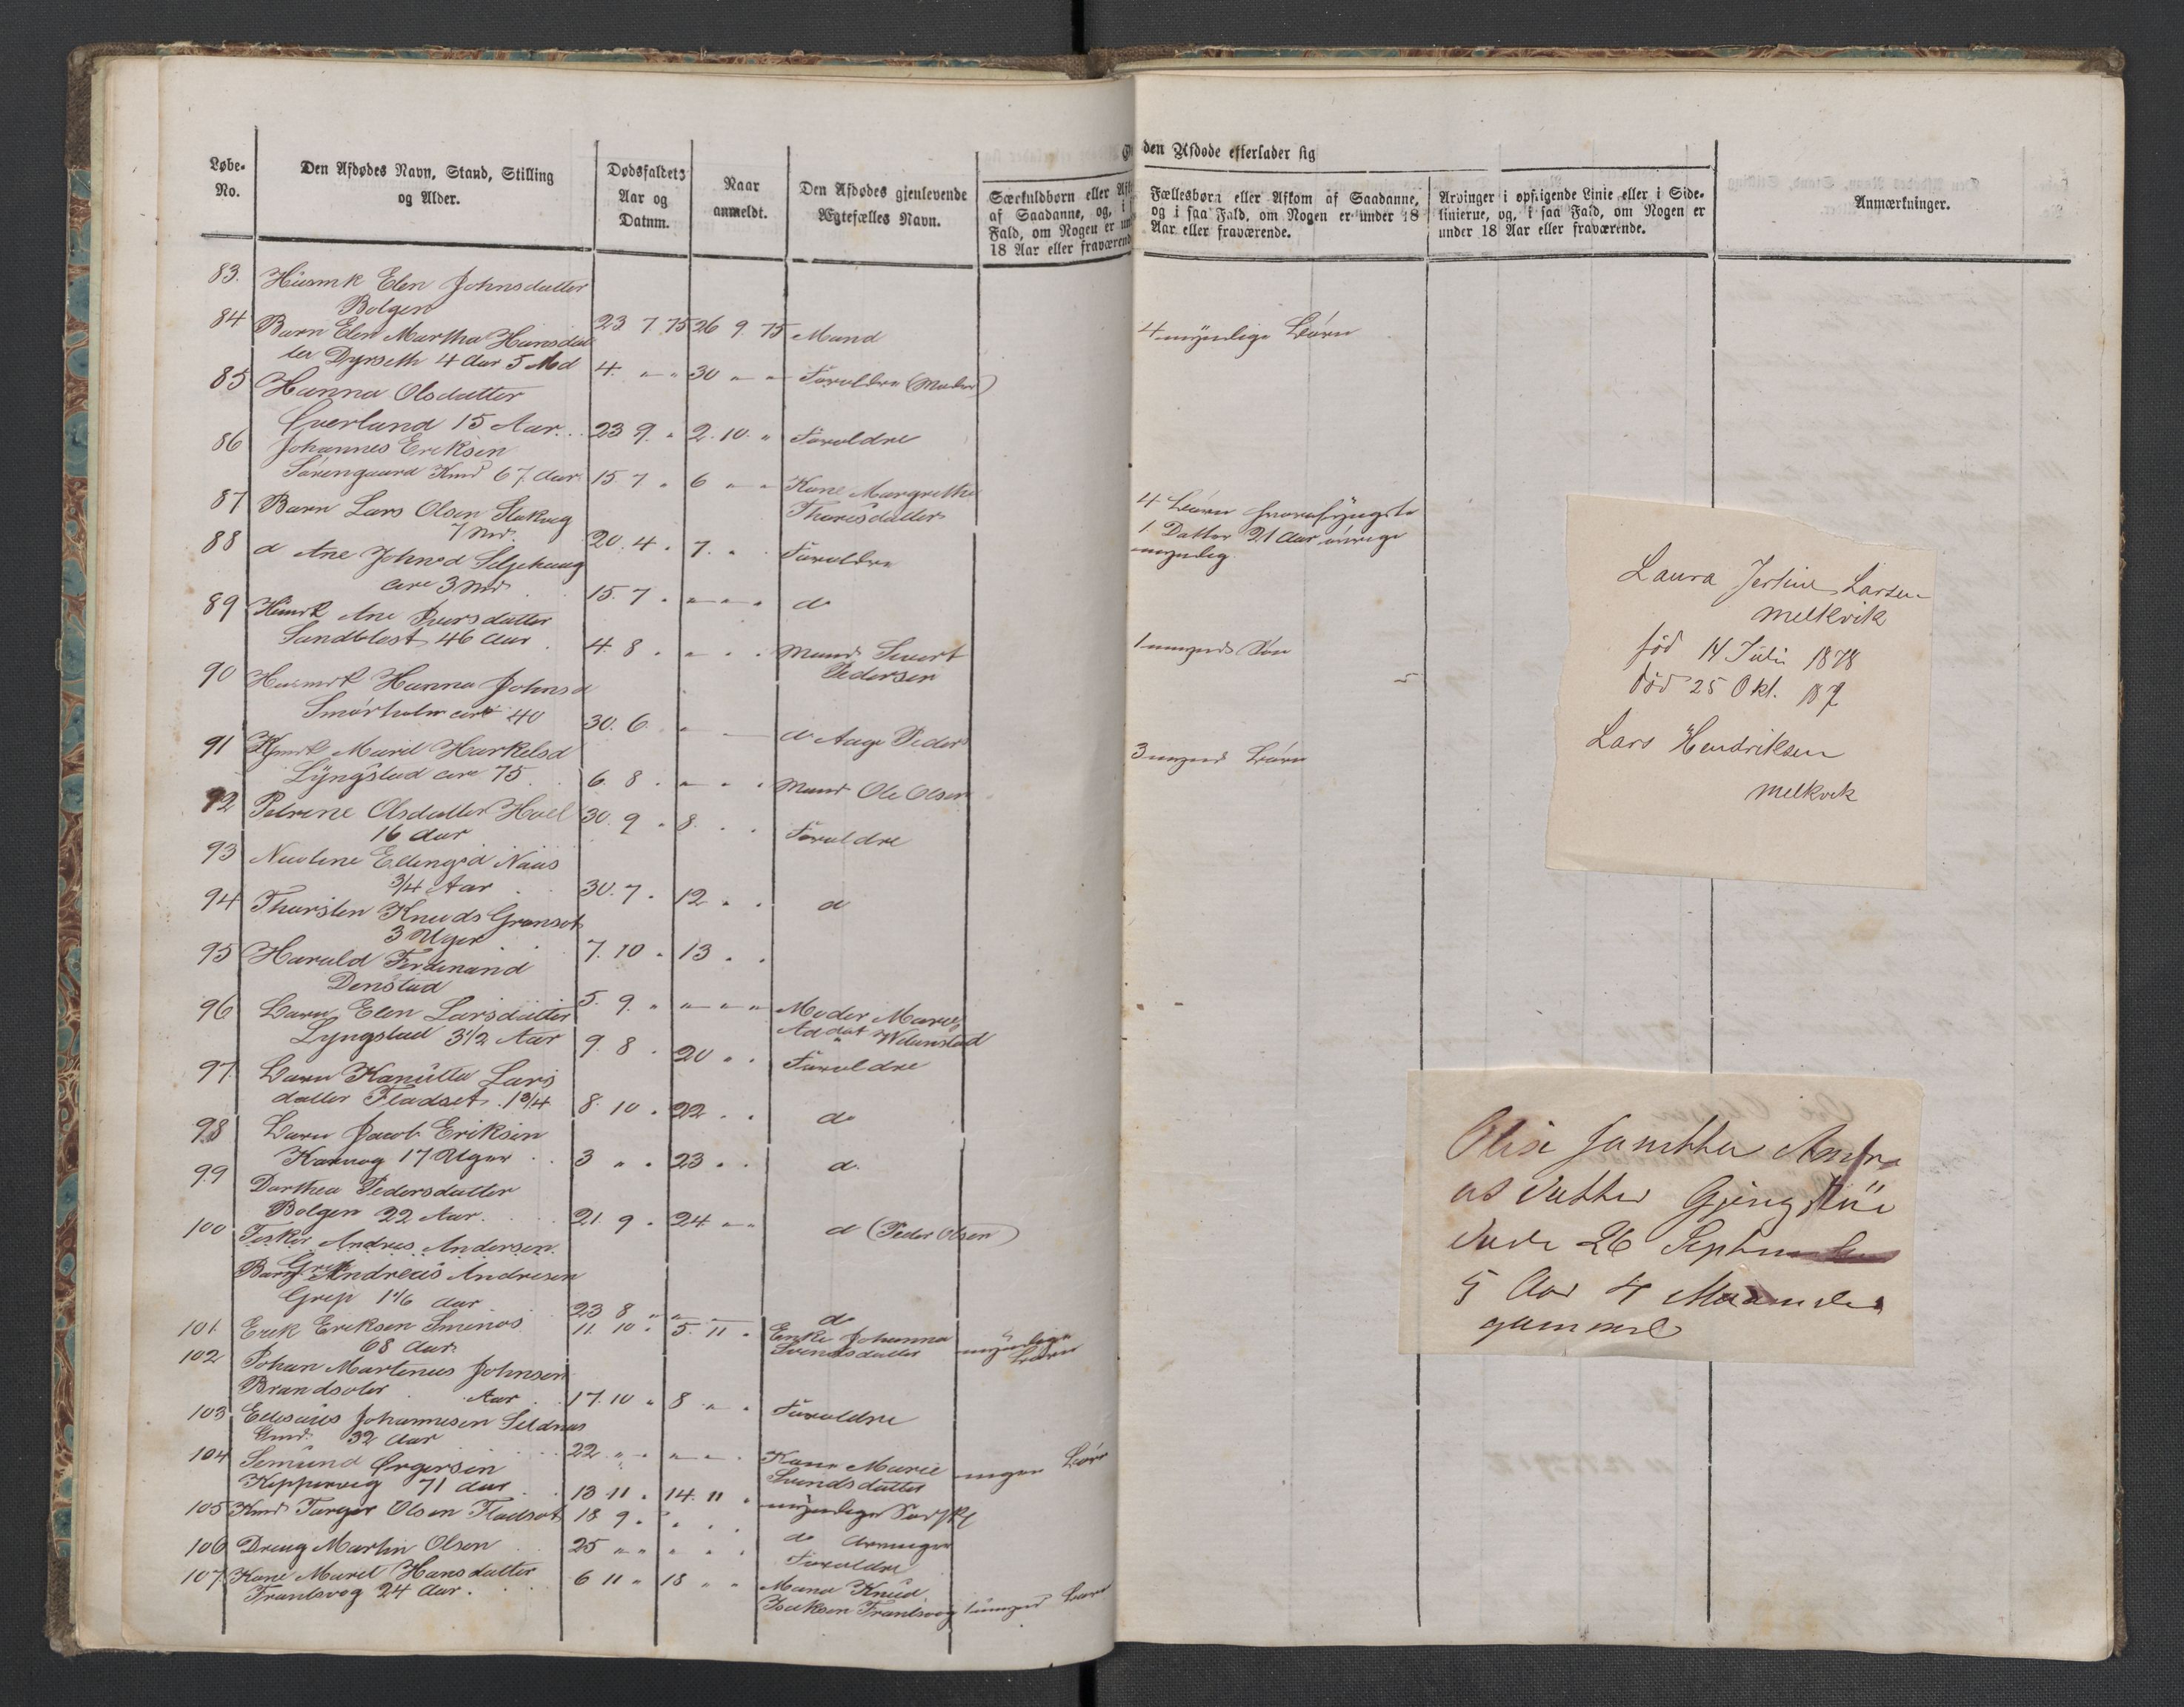 Løbe-
No.
Den Afdødes Navn, Stand, Stilling
og Alder.
Dødsfaldets
Aar og
Datum.
Naar
anmeldt.
Den Afdødes gjenlevende
Ægtefælles Navn.
Særkuldbørn eller
af Saadanne, og, i
Fald, om Nogen er
18 Aar eller
den Afdøde efterlader sig
Fællesbørn eller Afkom af Saadanne,
og i saa Fald, om Nogen er under 18
Aar eller fraværende.
Arvinger i opstigende Linie eller i Side-
linierne, og, i saa Fald, om Nogen er
under 18 Aar eller fraværende.
Anmærkninger.
83. Huusmk Elen Johnsdatter
Bolgen 23 7. 75 26 9. 75 Mand 4 myndige Børn
84 Barn Elen Martha Hansdat
ter Dyrseth 4 Aar 5 Md 4. " " 30 " " Forældre (Moder)
85 Hanna Olsdatter
Øverland 15 Aar 23 9. " 2. 10. " Forældre
86 Johannes Eriksen
Sørengaard Kmd 67 Aar 15. 7 " 6 " " Kone Margrethe
Thoresdatter
4 Børn hvoraf yngste
1 Datter 21 Aar øvrige
myndig.
87 Barn Lars Olsen
7 Md. 20. 4 " 7. " Forældre
88 d Ane Johnsd
circa 3 Md 15. 7 " " " " do
89 Huusmk Ane Iversdatter
Sandblost 46 Aar 4. 8 " " " " Mand Sivert
Pedersen 1 mynd. Søn
90 Huusmk Hanna Johnsd
Smørholm circa 40 30. 6. " d Aage Peders 3 mynd Børn
91 Marit Harkelsd
Lyngstad circa 75 6. 8 " " " " Mand Ole Olsen
92 Petrine Olsdatter Hoel 30. 9 " 8. " "
16 Aar Forældre
93 Nicoline Ellingsd Naas
3/4 Aar 30. 7 " 12 " " d
94 Thorsten Knuds Granset
3 Uger 7. 10 " 13 " "
95 Harald Ferdinand
Denstad 5. 9. " " " " Moder Maren
96 Barn Elen Larsdatter
Lyngstad 3 1/2 Aar 9. 8 " 20 " " Forældre
97 Barn Kanutta Lars
datter Fladset 1 3/4 8. 10 " 22 " " do
98 Barn Jacob Eriksen
17 Uger 3 " " 23 " " d.
99 Dorthea Pedersdatter
Bolgen 22 Aar. 21. 9 " 24 " " d (Peder Olsen)
100 Fisker Andreas Andersen
Grip
Barn Andreas Andresen
Grip 1 1/6 Aar 23 8 " " do
101. Erik Eriksen
68 Aar 11. 10 " 5. 11 " Enke Johanna
Svendsdatter myndige
Børn
102 Johan Martinus Johnsen
Aar 17. 10 " 8 " " Forældre
103 Johannesen Seldnes
Gmd. 32 Aar 22 " " " " " Kone Marie
Svendsdatter ingen Børn
104 Semund
71 Aar 13 11 " 14. 11 " myndige
105 Kmd Torger Olsen Fladset 18 9 " " " " do Arvinger
106 Dreng Martin Olsen 25 " " " " " Forældre
107. Kone Marit Hansdatter
24 Aar. 6 11 " 18 " " Mand Knud
Isaksen 1 umynd Barn
Laura Jertine Larsen
Melkvik
fød 14 Juli 1878
død 25 Okt. 187
Lars Hendriksen
Melkvik
Olise Andre
as datter
døde 26 September
5 Aar 4 Maaneder
gammel